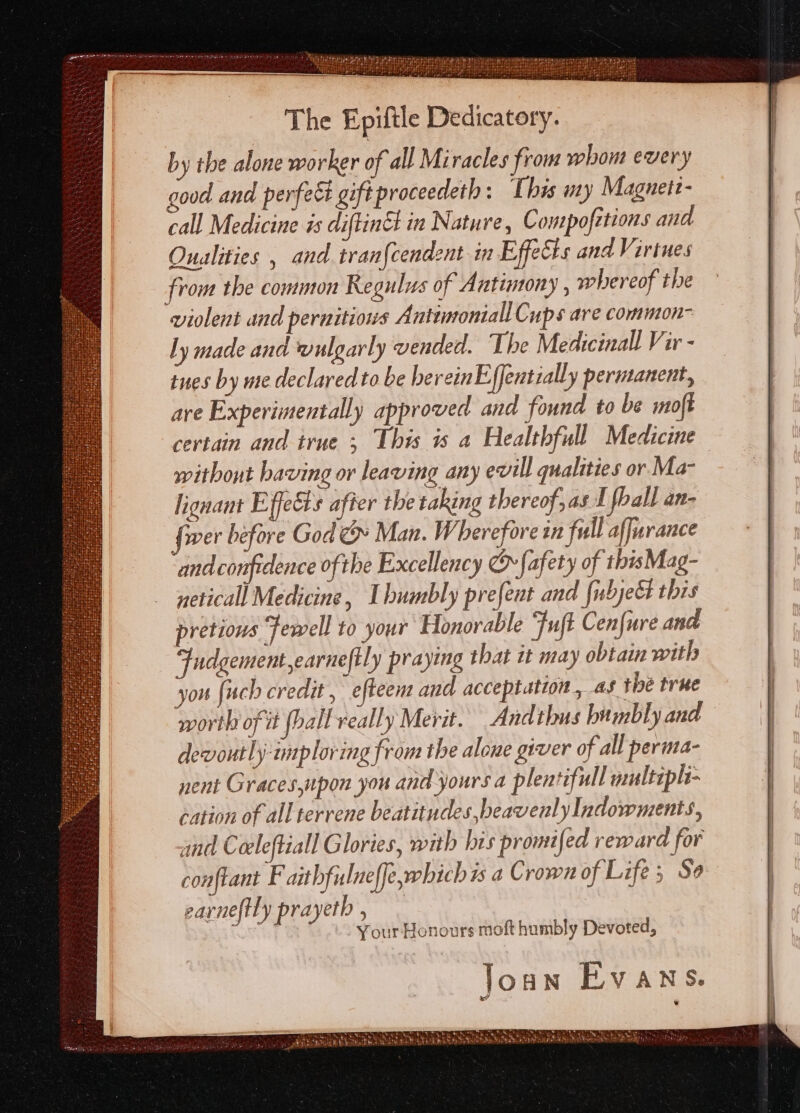 The Epiſtle Dedicatory.
by the alone worker of all Miracles from whom every
good and perfect gift proceedeth: This my Magneti-
call Medicine is diſtinct in Nature, Compoſitions and
Qualities , and tranſcendent in Effects and Virtues
from the common Regulus of Antimony , whereof the
violent and pernitious Antimoniall Cups are common-
ly made and vulgarly vended. The Medicinall Vir-
tues by me declared to be herein Eſſentially permanent,
are Experimentally approved and found to be moſt
certain and true ; This is a Healthfull Medicine
without having or leaving any evill qualities or Ma-
lignant Effects after the taking thereof, as I ſhall an-
ſwer before God & Man. Wherefore in full aſſurance
and confidence of the Excellency & ſafety of this Mag-
neticall Medicine, I humbly preſent and ſubject this
pretious Jewell to your Honorable Juſt Cenſure and
Judgement, earneſtly praying that it may obtain with
you ſuch credit, eſteem and acceptation, as the true
worth of it ſhall really Merit. And thus humbly and
devoutly imploring from the alone giver of all perma-
nent Graces, upon you and yours a plentifull multipli-
cation of all terrene beatitudes, heavenly Indowments,
and Cœleſtiall Glories, with his promiſed reward for
conſtant Faithfulneſſe, which is a Crown of Life ; So
earneſtly prayeth ,
Your Honours moſt humbly Devoted,
JOHN EVANS.